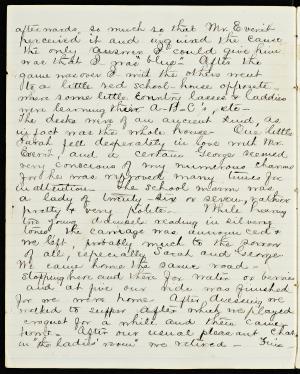 afterwards, so much so that Mr. Everit
perceived it and inquired the cause
the only answer I could give him
was that I was "blue". After the
game was over I and the others went
to a little red school-house opposite
where some little country lasses & laddies
were learning their A-B-C's, etc -
The desks were of an ancient kind, as
in fact was the whole house. One little
Sarah fell desperately in love with Mr.
Everit, and a certain George seemed
very conscious of my numerous charms
for he was reproved many times for
inattention. The school marm was
a lady of twenty-six or seven, rather
pretty & very polite. While hearing
two young damsels reading in silvery
tones the carriage was announced &
we left, probably much to the sorrow
of all, especially Sarah and George.
We came home the same road -
stopping here and there for water or berries
and at five our ride was finished
for we were home. After dressing we
walked to supper after which we played
croquet for a while and then came
home. After our usual pleasant chat
in "the ladies' room" we retired - Fine -